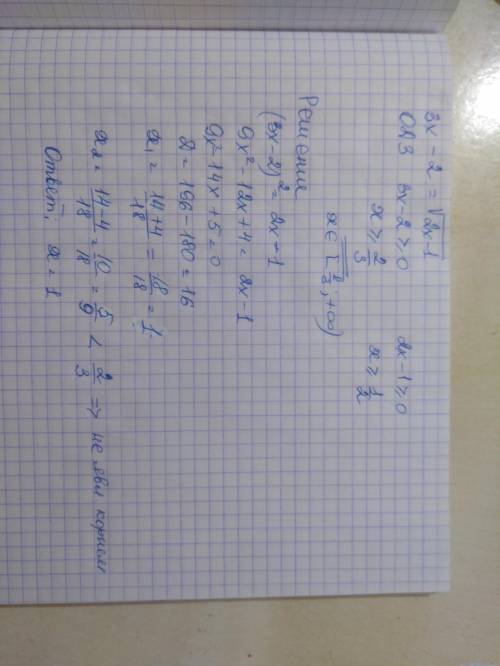 3x - 2 = √2x-1
ОДЗ 3x-2 ≥ 0 2x-1 ≥ 0
x ≥ 2/3 x ≥ 1/2
x ∈ [2/3; +∞)
Решение
(3x-2)² = 2x-1
9x² - 12x + 4 = 2x - 1
9x² - 14x + 5 = 0
D = 196 - 180 = 16
x₁ = 14+4/18 = 18/18 = 1
x₂ = 14-4/18 = 10/18 = 5/9 < 2/3 => не явл корнем
Ответ: x = 1